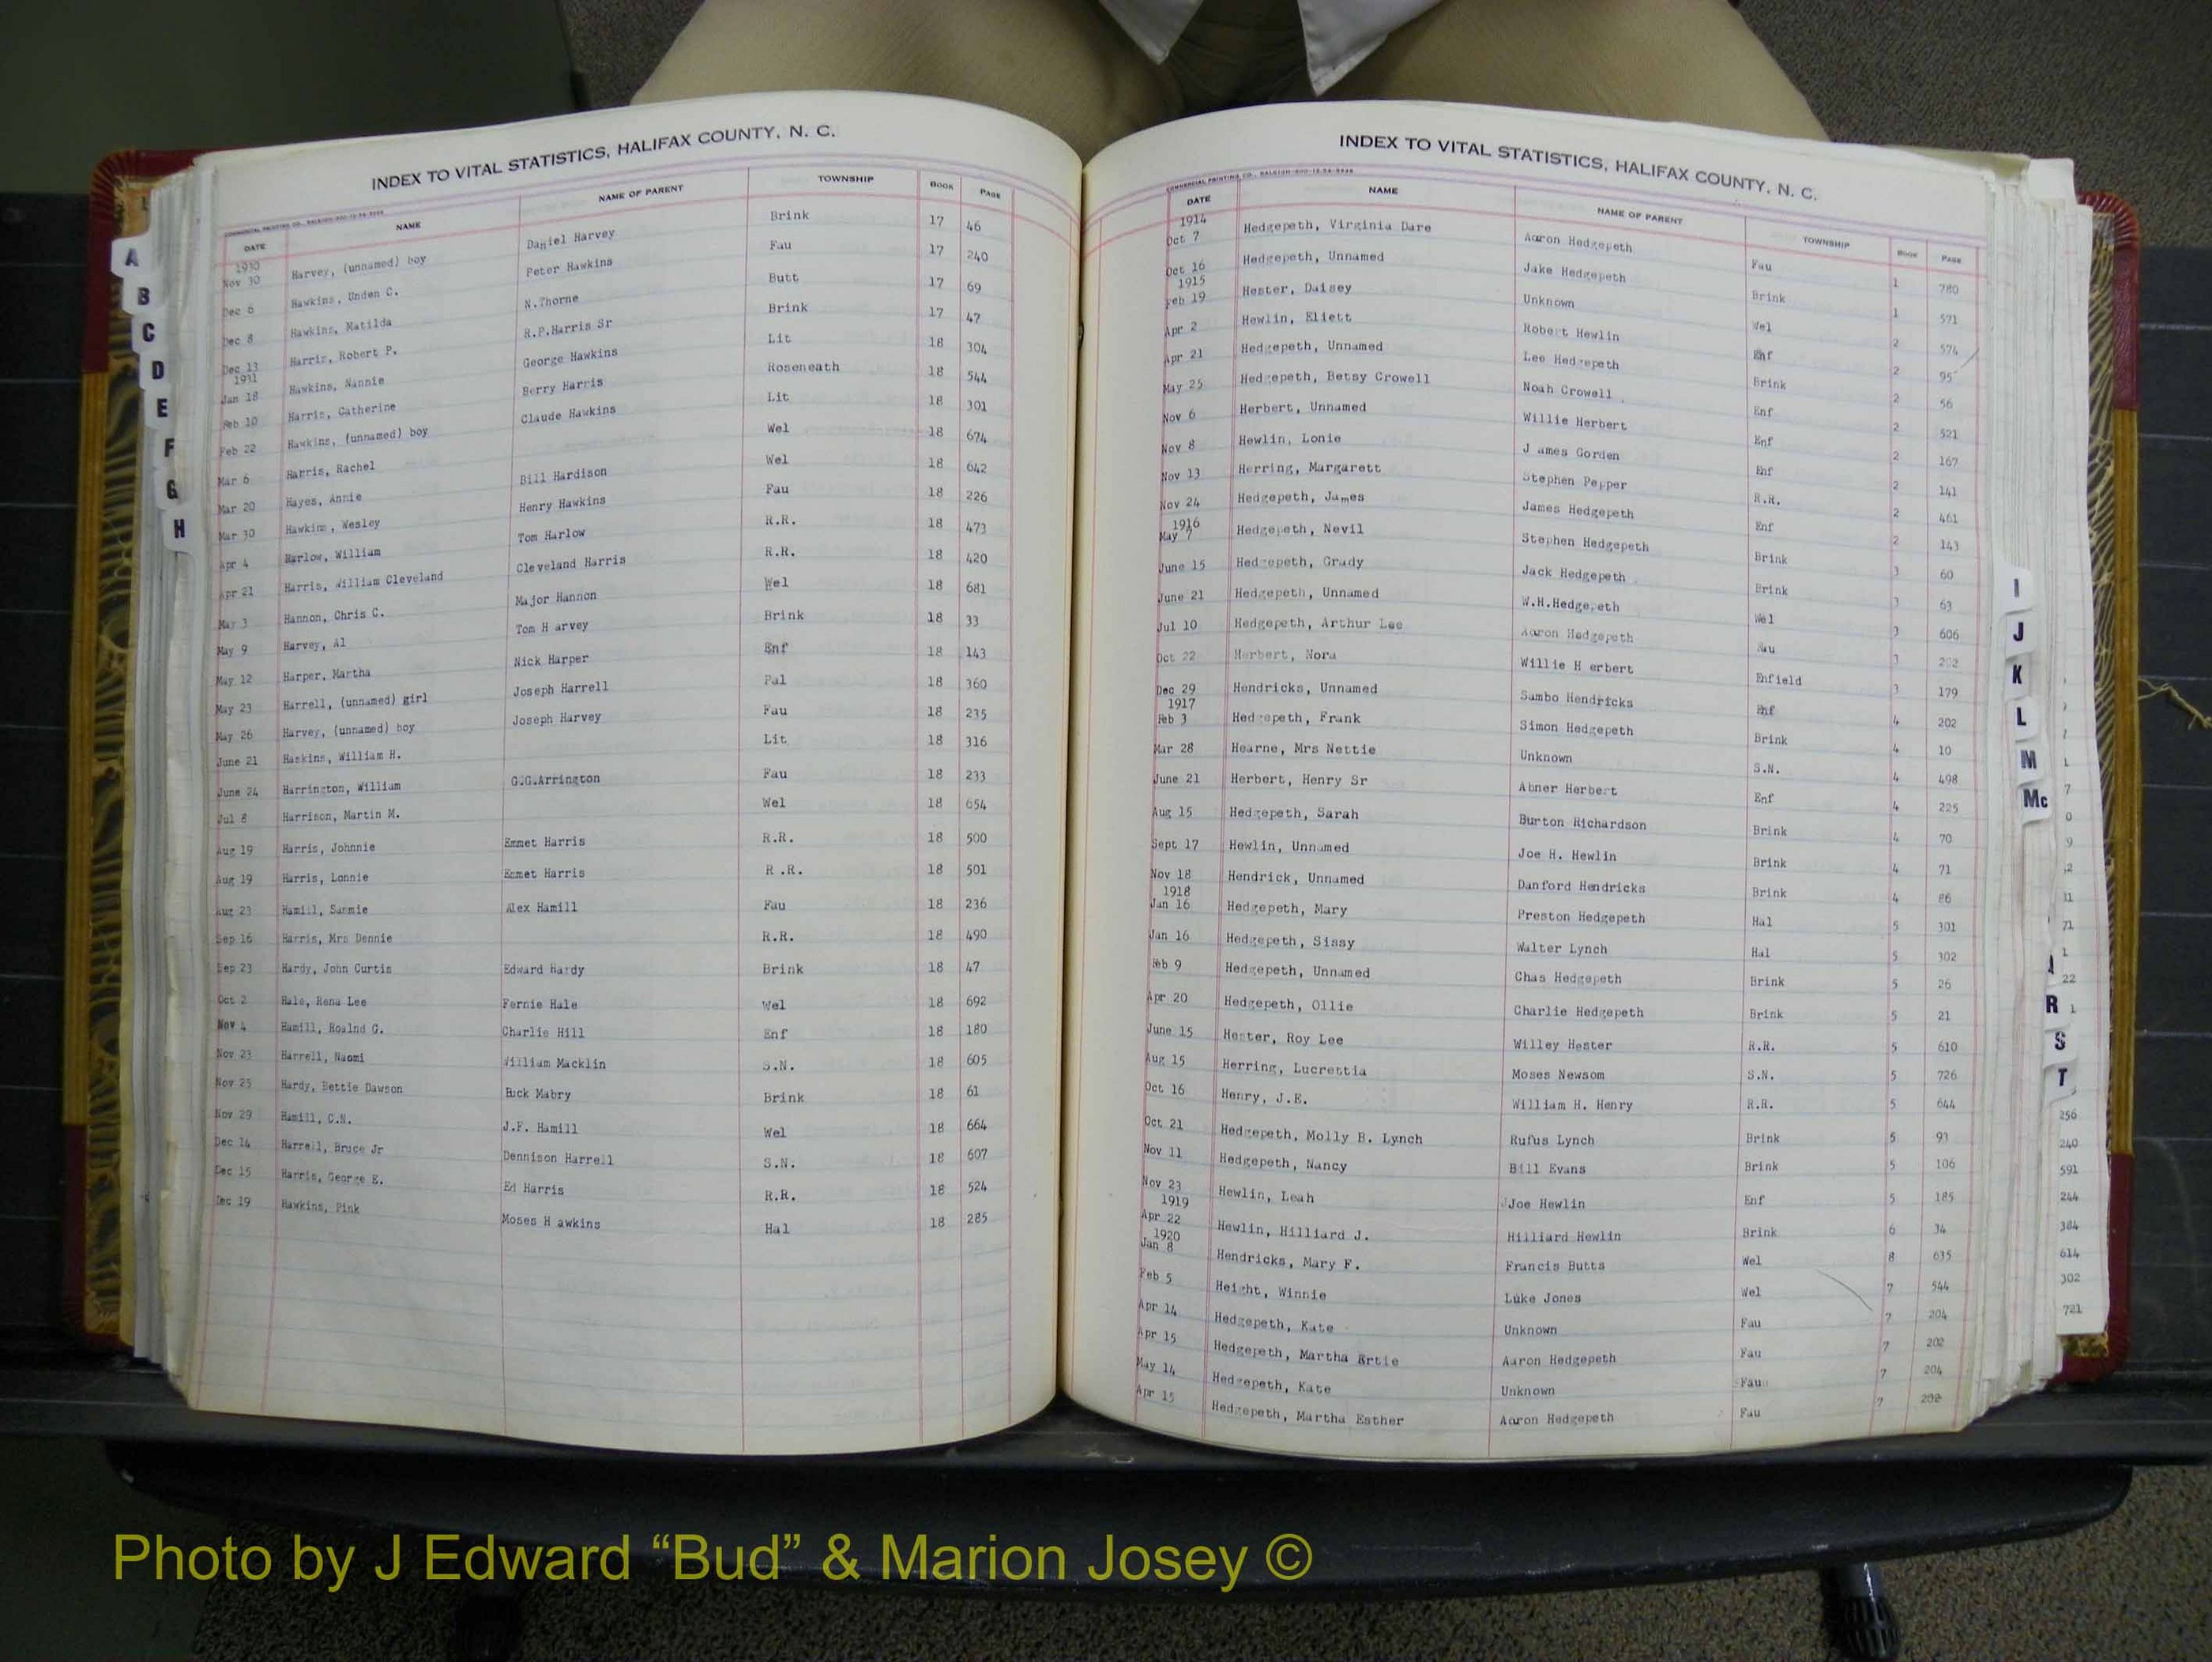 INDEX TO VITAL STATISTICS, HALIFAX COUNTY, N. C.
DATE NAME NAME OF PARENT TOWNSHIP BOOK PAGE
1930
Nov 30 Harvey, (unnamed) boy Daniel Harvey Brink 17 46
Dec 6 Hawkins, Unden C. Peter Hawkins Fau 17 240
Dec 8 Hawkins, Matilda N.Thorne Butt 17 69
Dec 13 Harris, Robert P. R.P.Harris Sr Brink 17 47
1931
Jan 18 Hawkins, Nannie George Hawkins Lit 18 304
Feb 10 Harris, Catherine Berry Harris Roseneath 18 544
Feb 22 Hawkins, (unnamed) boy Claude Hawkins Lit 18 301
Mar 6 Harris, Rachel Wel 18 674
Mar 20 Hayes, Annie Bill Hardison Wel 18 642
Mar 30 Hawkins, Wesley Henry Hawkins Fau 18 226
Apr 4 Harlow, William Tom Harlow R.R. 18 473
Apr 21 Harris, William Cleveland Cleveland Harris R.R. 18 420
May 3 Hannon, Chris C. Major Hannon Wel 18 681
May 9 Harvey, Al Tom H arvey Brink 18 33
May 12 Harper, Martha Nick Harper Enf 18 143
May 23 Harrell, (unnamed) girl Joseph Harrell Pal 18 360
May 26 Harvey, (unnamed) boy Joseph Harvey Fau 18 235
June 21 Haskins, William H. Lit 18 316
June 24 Harrington, William G.G.Arrington Fau 18 233
Jul 8 Harrison, Martin M. Wel 18 654
Aug 19 Harris, Johnnie Emmet Harris R.R. 18 500
Aug 19 Harris, Lonnie Emmet Harris R .R. 18 501
Aug 23 Hamill, Sammie Alex Hamill Fau 18 236
Sep 16 Harris, Mrs Dennie R.R. 18 490
Sep 23 Hardy, John Curtis Edward Hardy Brink 18 47
Oct 2 Hale, Rena Lee Fernie Hale Wel 18 692
Nov 4 Hamill, Roalnd G. Charlie Hill Enf 18 180
Nov 23 Harrell, Naomi William Macklin S.N. 18 605
Nov 25 Hardy, Bettie Dawson Buck Mabry Brink 18 61
Nov 29 Hamill, C.N. J.F. Hamill Wel 18 664
Dec 14 Harrell, Bruce Jr Dennison Harrell S.N. 18 607
Dec 15 Harris, George E. Ed Harris R.R. 18 524
Dec 19 Hawkins, Pink Moses H awkins Hal 18 285
A
B
C
D
E
F
G
H
INDEX TO VITAL STATISTICS, HALIFAX COUNTY, N. C.
DATE NAME NAME OF PARENT TOWNSHIP BOOK PAGE
1914
Oct 7 Hedgepeth, Virginia Dare Aaron Hedgepeth Fau 1 780
Oct 16 Hedgepeth, Unnamed Jake Hedgepeth Brink 1 571
1915
Feb 19 Hester, Daisey Unknown Wel 2 574
Apr 2 Hewlin, Eliett Robert Hewlin Enf 2 95
Apr 21 Hedgepeth, Unnamed Lee Hedgepeth Brink 2 56
May 25 Hedgepeth, Betsy Crowell Noah Crowell Enf 2 521
Nov 6 Herbert, Unnamed Willie Herbert Enf 2 167
Nov 8 Hewlin, Lonie J ames Gorden Enf 2 141
Nov 13 Herring, Margarett Stephen Pepper R.R. 2 461
Nov 24 Hedgepeth, James James Hedgepeth Enf 2 143
1916
May 7 Hedgepeth, Nevil Stephen Hedgepeth Brink 3 60
June 15 Hedgepeth, Grady Jack Hedgepeth Brink 3 63
June 21 Hedgepeth, Unnamed W.H.Hedgepeth Wel 3 606
Jul 10 Hedgepeth, Arthur Lee Aaron Hedgepeth Fau 3 202
Oct 22 Herbert, Nora Willie H erbert Enfield 3 179
Dec 29 Hendricks, Unnamed Sambo Hendricks Enf 4 202
1917
Feb 3 Hedgepeth, Frank Simon Hedgepeth Brink 4 10
Mar 28 Hearne, Mrs Nettie Unknown S.N. 4 498
June 21 Herbert, Henry Sr Abner Herbert Enf 4 225
Aug 15 Hedgepeth, Sarah Burton Richardson Brink 4 70
Sept 17 Hewlin, Unnamed Joe H. Hewlin Brink 4 71
Nov 18 Hendrick, Unnamed Danford Hendricks Brink 4 86
1918
Jan 16 Hedgepeth, Mary Preston Hedgepeth Hal 5 301
Jan 16 Hedgepeth, Sissy Walter Lynch Hal 5 302
Feb 9 Hedgepeth, Unnamed Chas Hedgepeth Brink 5 26
Apr 20 Hedgepeth, Ollie Charlie Hedgepeth Brink 5 21
June 15 Hester, Roy Lee Willey Hester R.R. 5 610
Aug 15 Herring, Lucrettia Moses Newsom S.N. 5 726
Oct 16 Henry, J.E. William H. Henry R.R. 5 644
Oct 21 Hedgepeth, Molly B. Lynch Rufus Lynch Brink 5 93
Nov 11 Hedgepeth, Nancy Bill Evans Brink 5 106
Nov 23 Hewlin, Leah Joe Hewlin Enf 5 185
1919
Apr 22 Hewlin, Hilliard J. Hilliard Hewlin Brink 6 34
1920
Jan 8 Hendricks, Mary F. Francis Butts Wel 8 635
Feb 5 Height, Winnie Luke Jones Wel 7 544
Apr 14 Hedgepeth, Kate Unknown Fau 7 204
Apr 15 Hedgepeth, Martha Ertie Aaron Hedgepeth Fau 7 202
May 14 Hedgepeth, Kate Unknown Fau 7 204
Apr 15 Hedgepeth, Martha Esther Aaron Hedgepeth Fau 7 202
I
J
K
L
M
Mc
R
S
T
256
240
591
244
384
614
302
721
Photo by J Edward “Bud” & Marion Josey ©